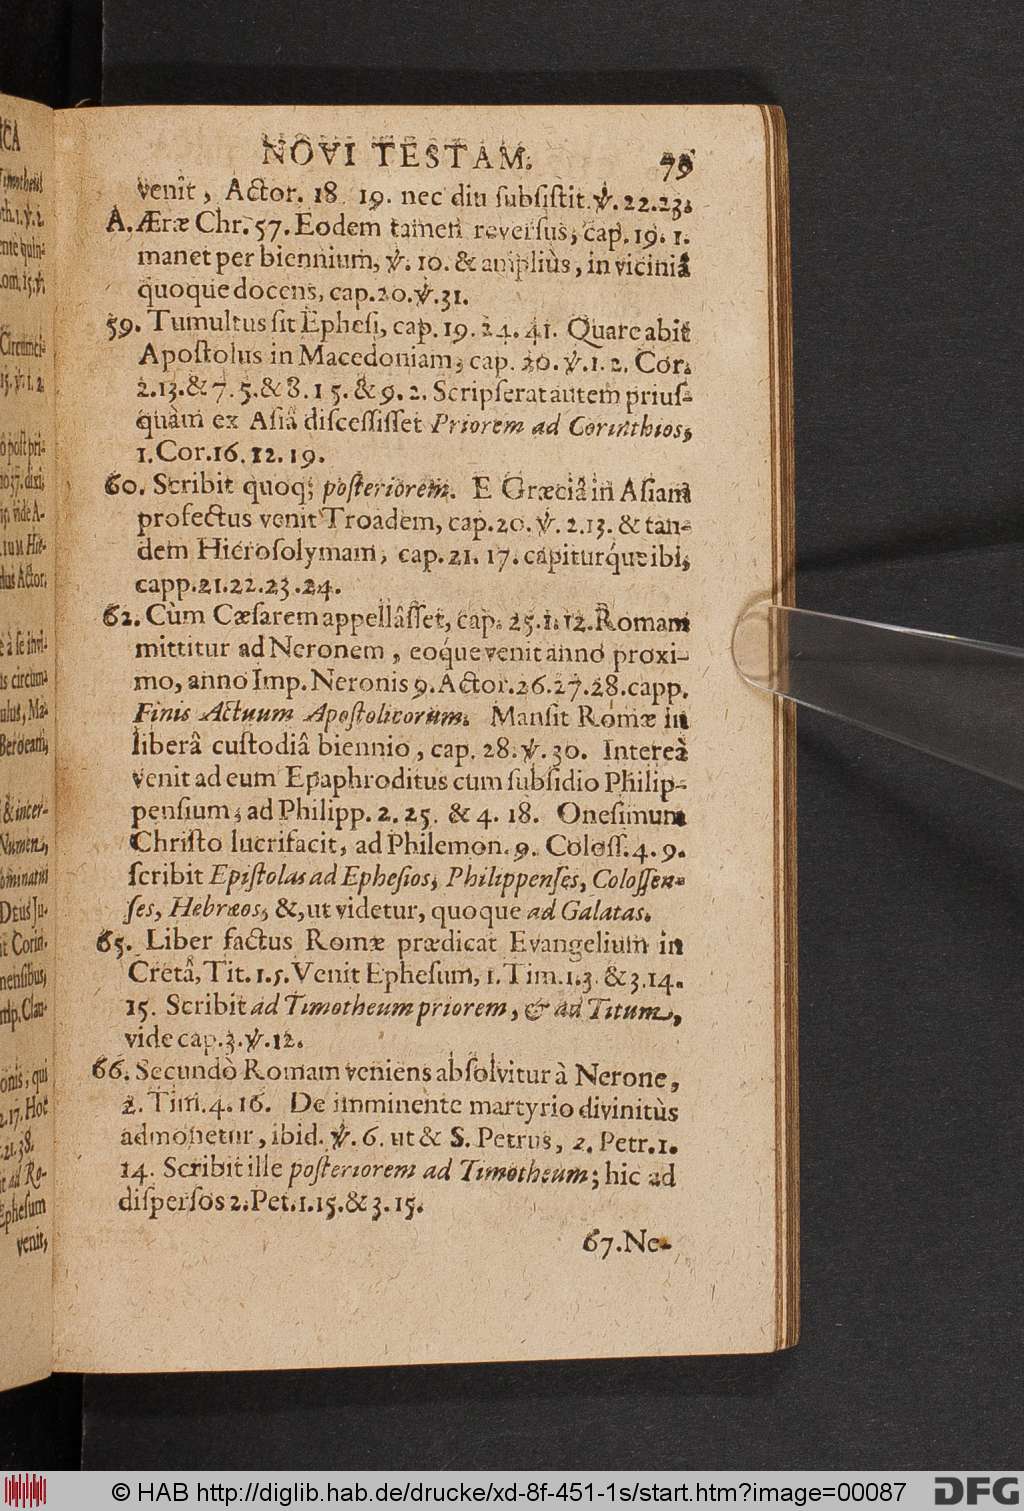 NOVI TESTAM. 79
venit, Actor. 18. 19. nec diu subsistit. ℣. 22.23.
A. Æræ Chr. 57. Eodem tamen reversus, cap. 19. 1.
manet per biennium, ℣. 10. & ampliùs, in viciniâ
quoque docens, cap. 20. ℣. 31.
59. Tumultus fit Ephesi, cap. 19. 24. 41. Quare abit
Apostolus in Macedoniam, cap. 20. ℣. 1. 2. Cor.
2.13. & 7. 5. & 8. 1 5. & 9. 2. Scripserat autem prius-
quàm ex Asiâ discessisset Priorem ad Corinthios,
1. Cor. 16. 12. 19.
60. Scribit quoq; posteriorem. E Græciâ in Asiam
profectus venit Troadem, cap. 20. ℣. 2. 13. & tan-
dem Hierosolymam, cap. 21. 17. capiturq́ue ibi,
capp. 21. 22. 23. 24.
62. Cùm Cæsarem appellâsset, cap. 25. 1. 12. Romam
mittitur ad Neronem, eoque venit anno proxi-
mo, anno Imp. Neronis 9. Actor. 26. 27. 28. capp.
Finis Actuum Apostolicorum. Mansit Romæ in
liberâ custodiâ biennio, cap. 28. ℣. 30. Intereà
venit ad eum Epaphroditus cum subsidio Philip-
pensium, ad Philipp. 2. 25. & 4. 18. Onesimum
Christo lucrifacit, ad Philemon. 9. Coloss. 4. 9.
scribit Epistolas ad Ephesios, Philippenses, Colossen-
ses, Hebræos, &, ut videtur, quoque ad Galatas.
65. Liber factus Romæ prædicat Evangelium in
Cretâ, Tit. 1. 5. Venit Ephesum, 1. Tim. 1. 3. & 3. 14.
15. Scribit ad Timotheum priorem, & ad Titum,
vide cap. 3. ℣. 12.
66. Secundò Romam veniens absolvitur à Nerone,
2. Tim. 4. 16. De imminente martyrio divinitùs
admonetur, ibid. ℣. 6. ut & S. Petrus, 2. Petr. 1.
14. Scribit ille posteriorem ad Timotheum; hic ad
dispersos 2. Pet. 1. 15. & 3. 15.
67. Ne-
© HAB http://diglib.hab.de/drucke/xd-8f-451-1s/start.htm?image=00087
DFG